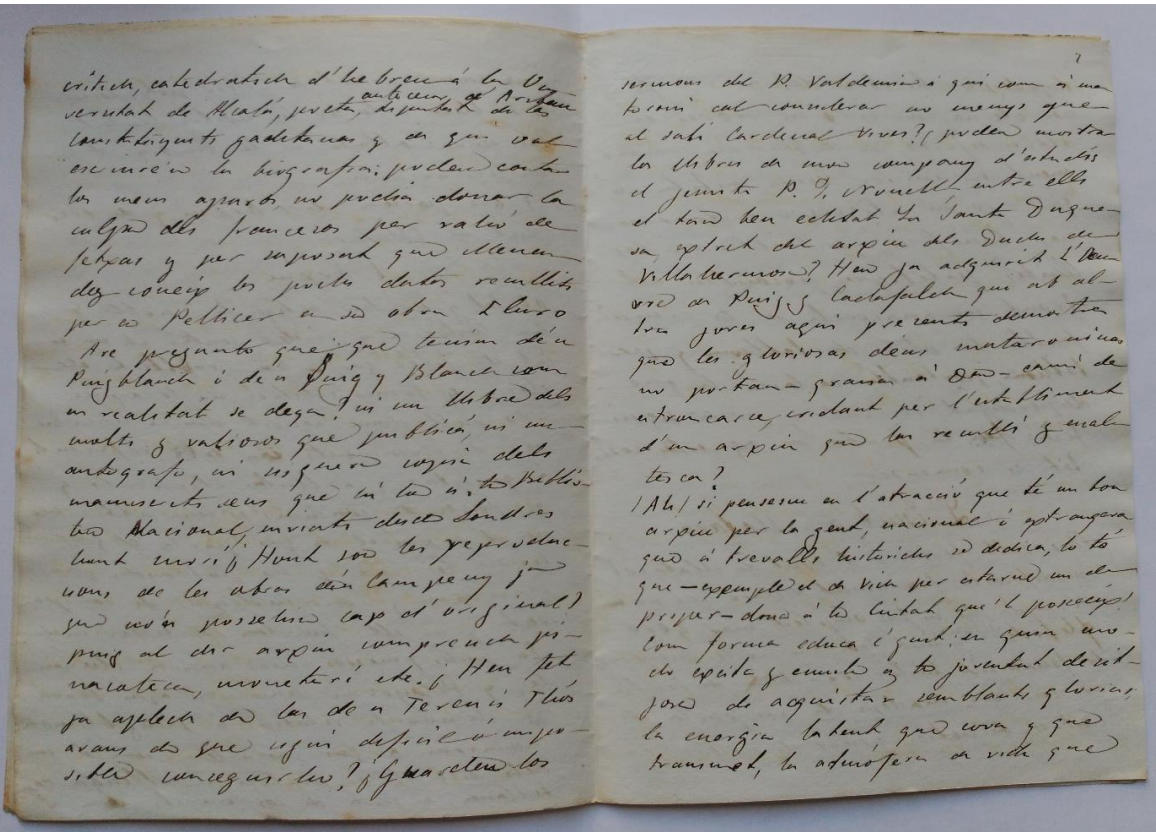 crítich, catedratich d'hebreu á la Uni
versitat de Alcalá, poeta, diputat de las
antecesor de Aribau
constituyents gaditanas y de qui
escriuré la biografia: poden contar
los meus apuros, no podía donar la
culpa dels francesos per rahó de
fetxas y per suposat que Menen
dez coneix los pochs datos recullits
per en Pellicer en sa obra Iluro
Are pregunto que que tenim d'en
Puigblanch ó de'n Puig y Blanch com
en realitat se deya? ni un llibre dels
molts y valiosos que publicá, ni un
autografo, ni siquera copia dels
manuscrits seus que hi ha á la Biblio-
teca Nacional, enviats desde Londres
hont morí ¿Hont son les reproduc-
cions de les obras d'en Campeny ja
que no'n possehim cap d'original?
puig al dir arxiu comprench pi-
nacoteca, monetari etc. ¿Hen fet
ja aplech de las de'n Terenci Thós
avans de que sigui dificil ó impo-
sible conseguirho? ¿Guardeu los
7
sermons del P. Valdemia á qui com á ma
toroní cal considerar no menys que
al sabi Cardenal Vives? ¿poden mostrar
los llibres de mon company d'estudis
el jesuita P. J. Nonell, entre ells
el tan ben editat La Santa Duque
sa, extret del arxiu dels Duchs de
Villahermosa? Heu ja adquirit L'
de Puig y Cadafalch qui ab al-
tres joves aquí presents demostra
que les gloriosas deus mataroninas
no portan—gracias á Deu—camí de
estroncarse, cridant per l'establiment
d'un arxiu que las reculli y enal-
tesca?
¡Ah! si pensessem en l'atracció que té un bon
arxiu per la gent, nacional ó extrangera
que á trevalls historichs se dedica, lo tó
que—exemple el de Vich per estarne un de
proper—dona á la ciutat que'l posseeix!
Com forma educa é gust: en quin mo-
do excita y enmotlla á la joventut desit-
josa de acquistar semblants glorias,
la energía latent que cova y que
transmet, la atmósfera de vida que